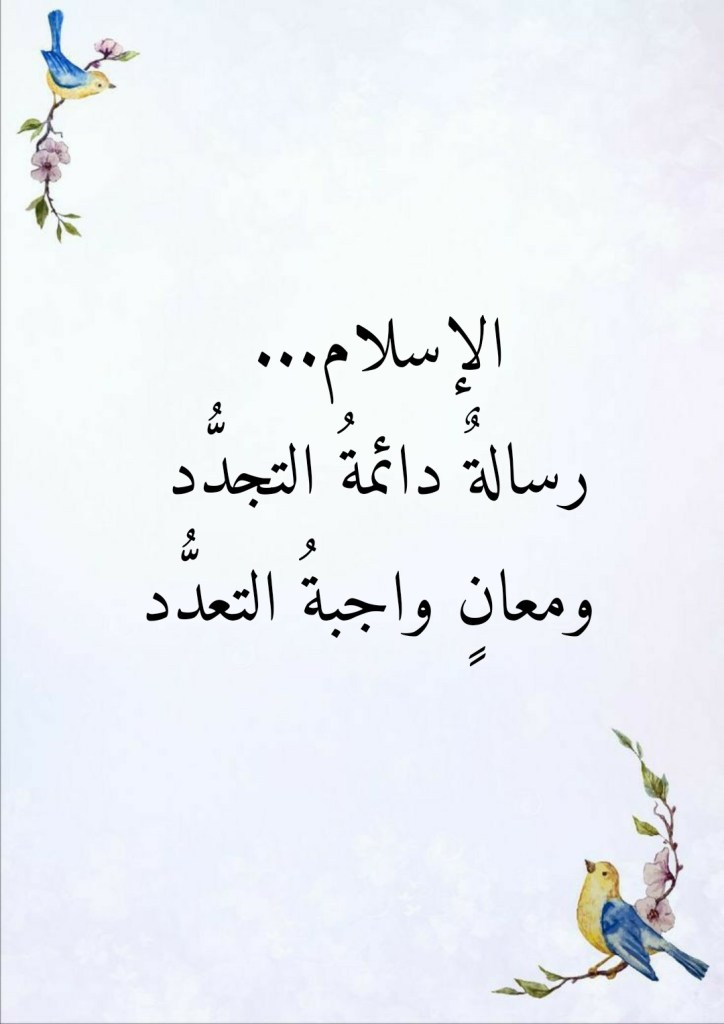 الإسلام...
رسالةٌ دائمةُ التجدُّد
ومعانٍ واجبةُ التعدُّد